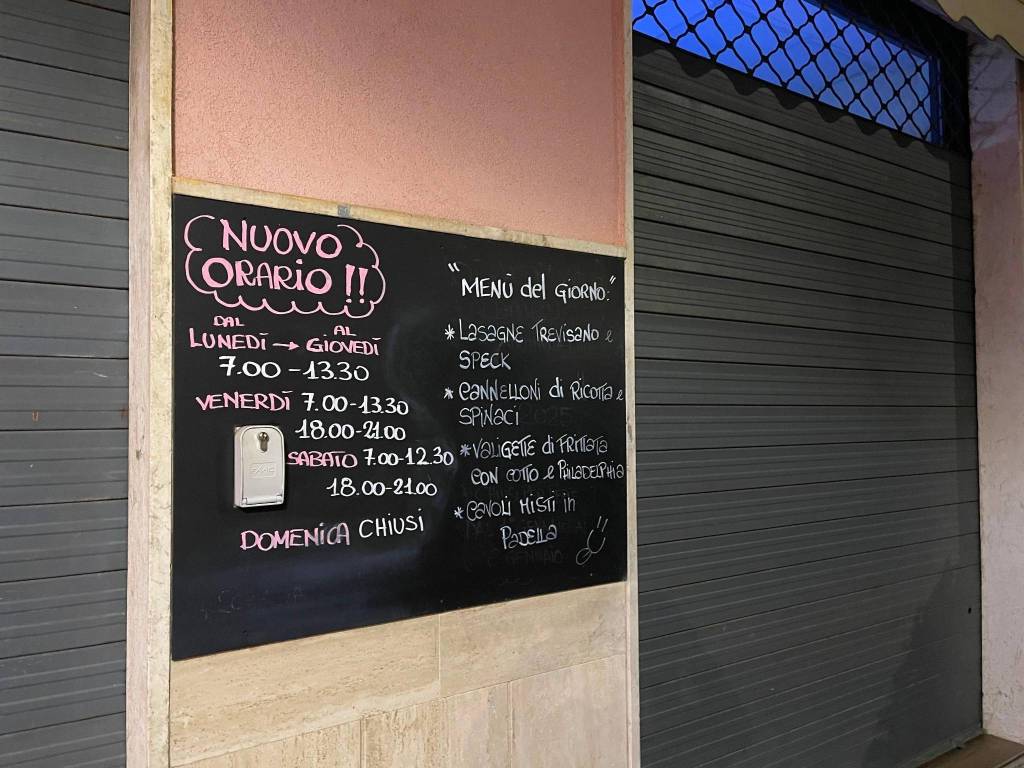 NUOVO
ORARIO!!
DAL AL
LUNEDÌ → GIOVEDÌ
7.00-13.30
VENERDÌ 7.00-13.30
18.00-21.00
SABATO 7.00-12.30
18.00-21.00
DOMENICA CHIUSI
"MENÙ del GIORNO:"
* LASAGNE TREVISANO e
SPECK
* CANNELLONI di RICOTTA e
SPINACI
* VALIGETTE di FRITTATA
CON COTTO e PHILADELPHIA
* CAVOLI MISTI in
PADELLA